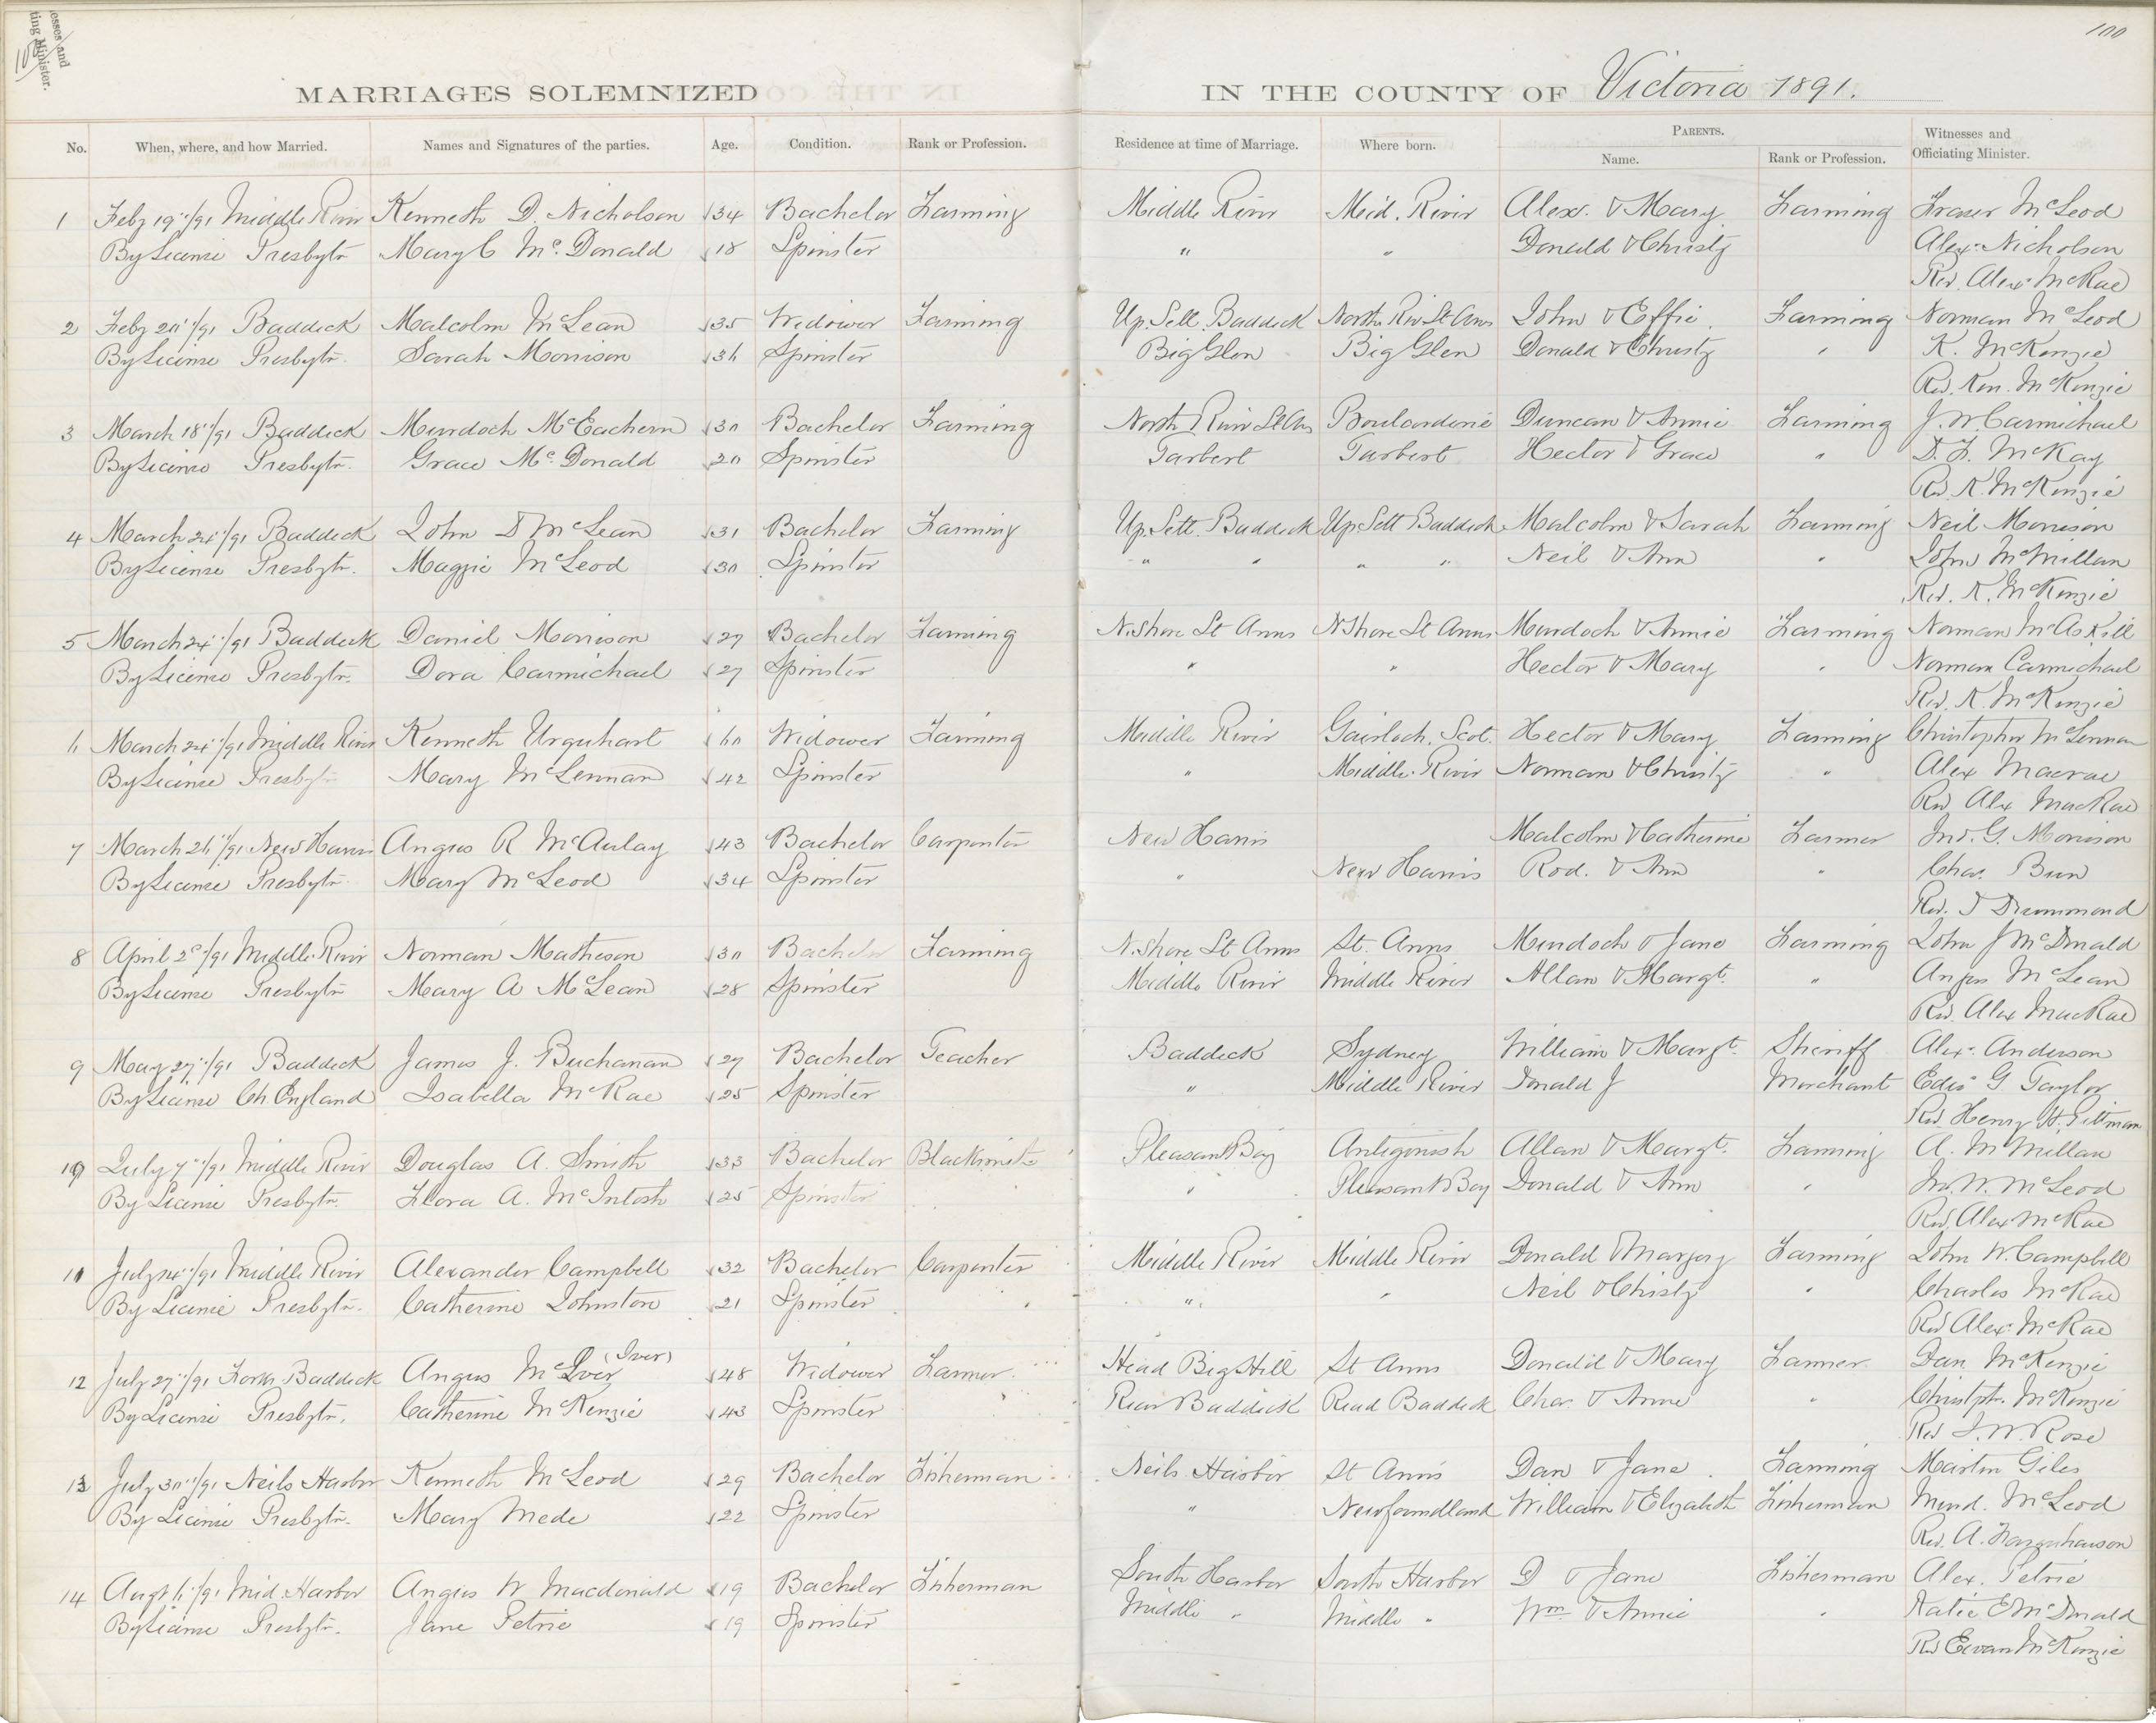 esses and
ting Minister.
100
100
MARRIAGES SOLEMNIZED
IN THE COUNTY OF Victoria 1891.
No. When, where, and how Married. Names and Signatures of the parties. Age. Condition. Rank or Profession. Residence at time of Marriage. Where born. PARENTS. Name. Rank or Profession. Witnesses and Officiating Minister.
1 Feby 19"/91 Middle River Kenneth D. Nicholson 34 Bachelor Farming Middle River Mid. River Alex. & Mary Farming Fraser McLeod
By License Presbytr Mary C McDonald 18 Spinster " " Donald & Christy Alex. Nicholson
Rev. Alex. McRae
2 Feby 20"/91 Baddeck Malcolm McLean 35 Widower Farming Up. Sett. Baddeck North Riv St Anns John & Effie Farming Norman McLeod
By License Presbytr. Sarah Morrison 36 Spinster Big Glen Big Glen Donald & Christy " K. McKenzie
Rev. Ken. McKenzie
3 March 18"/91 Baddeck Murdoch McEachern 30 Bachelor Farming North River St Ans Boulardarie Duncan & Annie Farming J. W Carmichael
By License Presbytr. Grace McDonald 20 Spinster Tarbert Tarbert Hector & Grace " D. F. McKay
Rev. K. McKenzie
4 March 24"/91 Baddeck John D McLean 31 Bachelor Farming Up. Sett. Baddeck Up. Sett Baddeck Malcolm & Sarah Farming Neil Morrison
By License Presbytr. Maggie McLeod 30 Spinster " " " " Neil & Ann " John McMillan
Rev. K. McKenzie
5 March 24"/91 Baddeck Daniel Morrison 27 Bachelor Farming N. Shore St Anns N Shore St Anns Murdoch & Annie Farming Norman McAskill
By License Presbytr. Dora Carmichael 27 Spinster " " Hector & Mary " Norman Carmichael
Rev. K. McKenzie
6 March 24"/91 Middle River Kenneth Urquhart 60 Widower Farming Middle River Gairloch, Scot. Hector & Mary Farming Christopher McLennan
By License Presbytr Mary McLennan 42 Spinster " Middle River Norman & Christy " Alex Macrae
Rev Alex MacRae
7 March 26"/91 New Harris Angus R McAulay 43 Bachelor Carpenter New Harris Malcolm & Catherine Farmer Jno. G. Morrison
By License Presbytr. Mary McLeod 34 Spinster " New Harris Rod. & Ann " Chas.
Rev. D Drummond
8 April 2"/91 Middle River Norman Matheson 30 Bachelor Farming N. Shore St Anns St. Anns Murdoch & Jane Farming John J McDonald
By License Presbytr Mary A McLean 28 Spinster Middle River Middle River Allan & Margt. " Angus McLean
Rev. Alex MacRae
9 May 27"/91 Baddeck James J. Buchanan 27 Bachelor Teacher Baddeck Sydney William & Margt. Sheriff Alex. Anderson
By License Ch England Isabella McRae 25 Spinster " Middle River Donald J Merchant G. Taylor
Rev. Henry H. Pittman
10 July 7"/91 Middle River Douglas A. Smith 33 Bachelor Blacksmith Pleasant Bay Antigonish Allan & Margt. Farming A. McMillan
By License Presbytr. Flora A. McIntosh 25 Spinster " Pleasant Bay Donald & Ann " Jno. W. McLeod
Rev. Alex McRae
11 July 14"/91 Middle River Alexander Campbell 32 Bachelor Carpenter Middle River Middle River Donald & Marjory Farming John W. Campbell
By License Presbytr. Catherine Johnston 21 Spinster " " Neil & Christy " Charles McRae
Rev Alex. McRae
12 July 27"/91 Forks Baddeck Angus McIver (Iver) 48 Widower Farmer Head Big Hill St Anns Donald & Mary Farmer Dan McKenzie
By License Presbytr. Catherine McKenzie 43 Spinster Rear Baddeck Read Baddeck Chas. & Anne " Christphr. McKenzie
Rev J. W. Rose
13 July 30"/91 Neils Harbor Kenneth McLeod 29 Bachelor Fisherman Neils Harbor St Anns Dan & Jane Farming Martin Giles
By License Presbytr. Mary Mede 22 Spinster " Newfoundland William & Elizabeth Fisherman Murd. McLeod
Rev. A. Farquharson
14 Augt 6"/91 Mid. Harbor Angus W Macdonald 19 Bachelor Fisherman South Harbor South Harbor D & Jane Fisherman Alex. Petrie
By License Presbytr. Jane Petrie 19 Spinster Middle " Middle " Wm & Annie " Katie E McDonald
Rev Ewan McKenzie